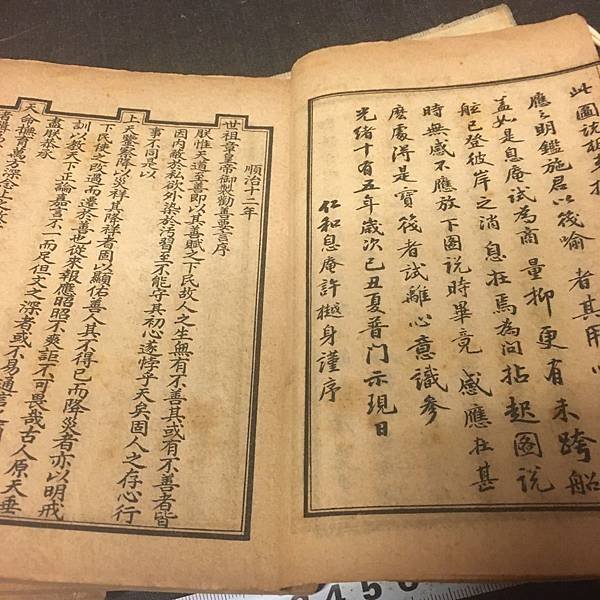 此圖說板
應之明鑑施君以筏喻者其用
蓋如是息庵試為商量抑更有未跨船
舷已登彼岸之消息在焉為問拈起圖說
時無感不應放下圖說時畢竟感應在甚
麽處得是寶筏者試離心意識參
光緒十有五年歲次己丑夏普门示現日
仁和息庵許樾身謹序
順治十二年
世祖章皇帝御製勸善要言序
朕惟天道至善即以其善賦之下民故人之生無有不善其或有不善者皆
因內蔽於私欲外染於汚習至不能守其初心遂悖乎天矣固人之存心行
事不同是以
上天鑒察降以災祥其降祥者固以顯佑善人其不得已而降災者亦以明戒
下民使之改過而遷於善也從來報應昭昭不爽詎不可畏哉古人原天垂
訓以教天下正論嘉言不一而足但文之深者或不易通言
盡朕恭承
天命撫育萬方深念
4 5 6